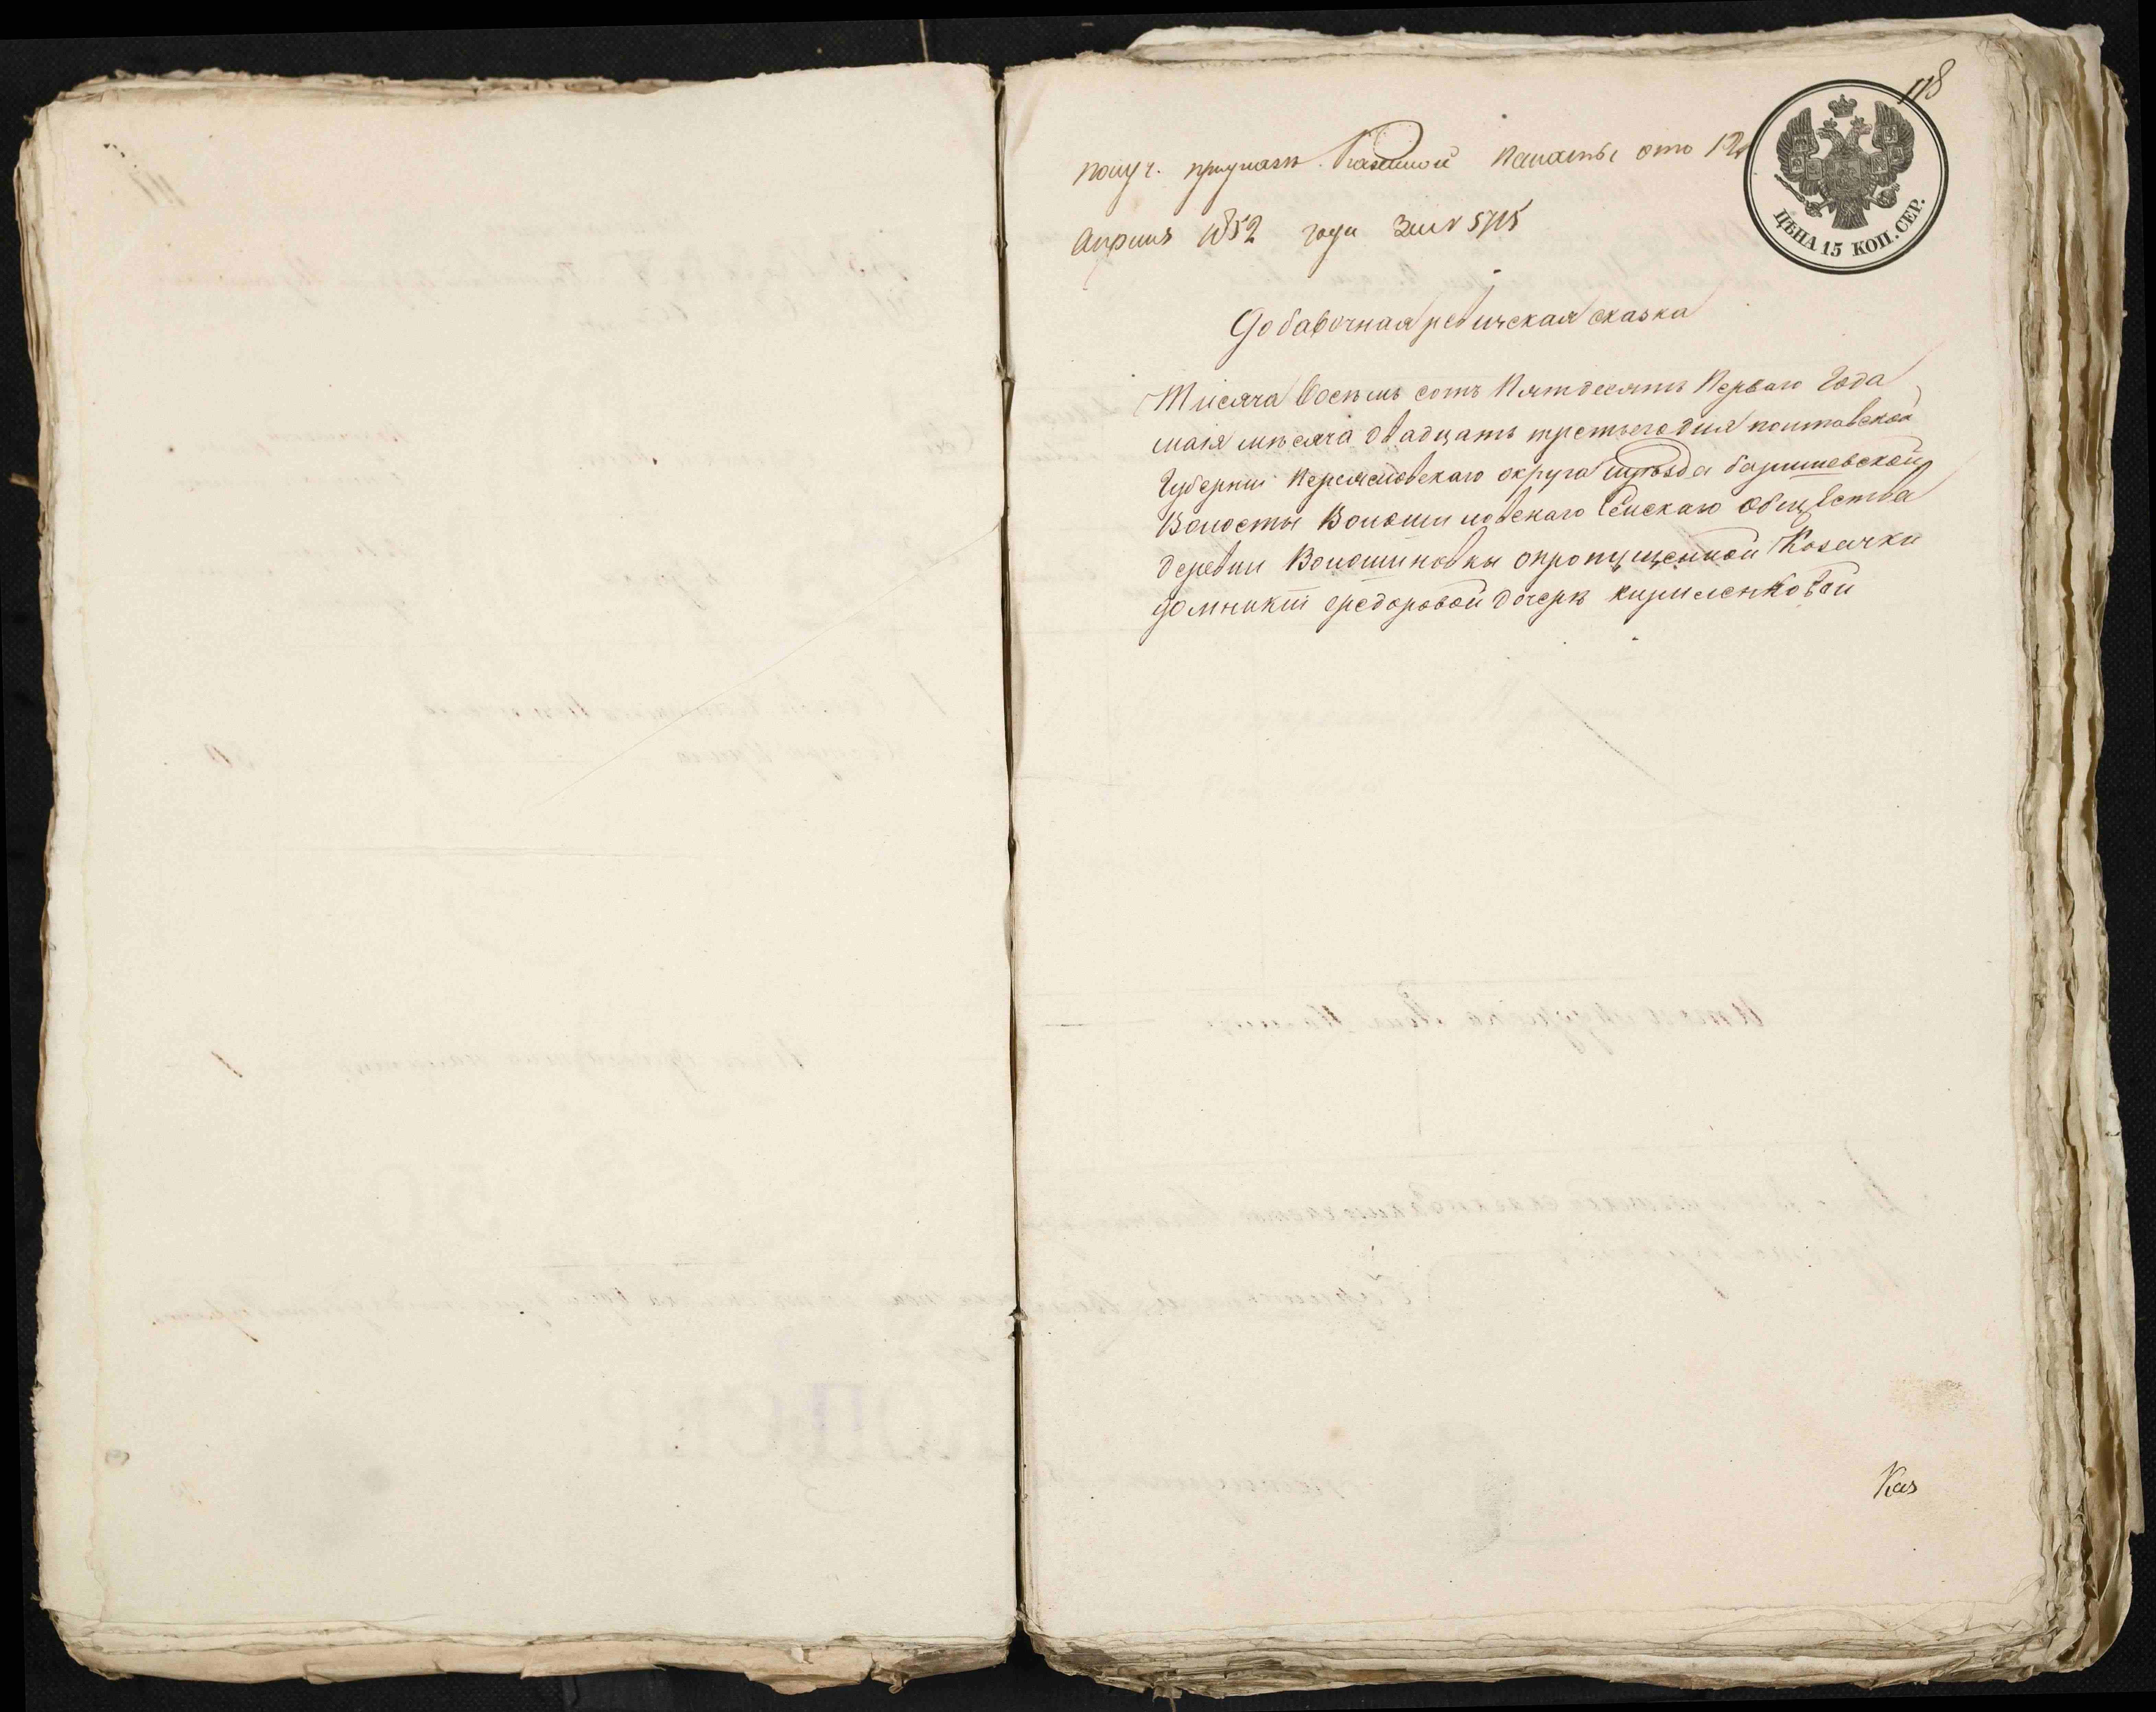 118
получ. при указѣ Казенной Палаты отъ 12
Апрѣля 1852 года за № 5715
ЦѢНА 15 КОП. СЕР.
Добавочная ревизская сказка
Тисяча восѣмь сотъ Пятдесятъ Перваго Года
маія мѣсяча двадцать третьего дня полтавской
Губерніи Переясловскаго округа иуѣзда баришевской
Волосты Волошиновскаго Селскаго Общества
деревни Волошиновки опропущенной Козачки
домникіи федоровой дочерѣ кириленковой
Каз